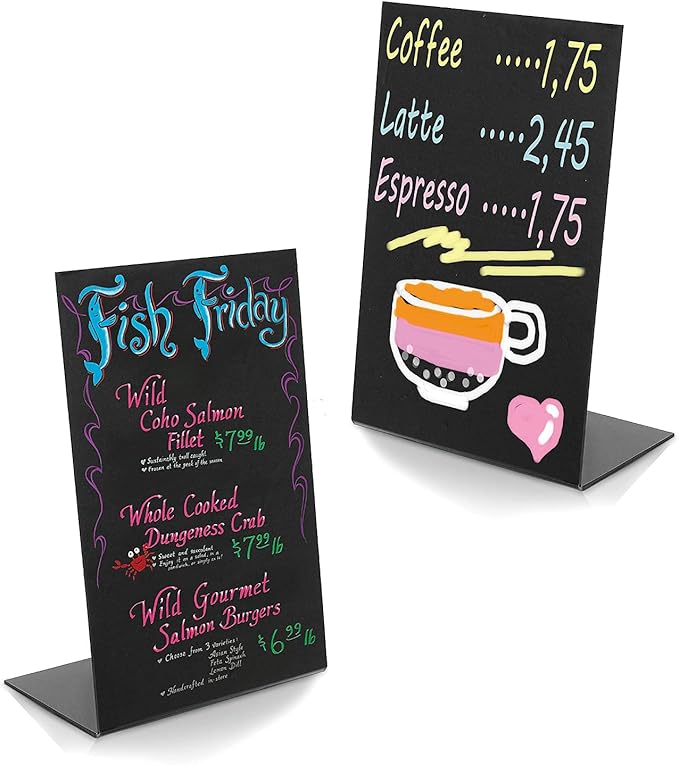 Coffee .....1,75
Latte .....2,45
Espresso .....1,75
Fish Friday
Wild
Coho Salmon
Fillet $7.99 lb
Sustainably troll caught
Frozen at the peak of the season
Whole Cooked
Dungeness Crab
$7.99 lb
Sweet and succulent
Enjoy it on a salad, in a
sandwich, or simply as is!
Wild Gourmet
Salmon Burgers
$6.99 lb
Choose from 3 varieties:
Asian Style
Feta Spinach
Lemon Dill
Handcrafted in-store